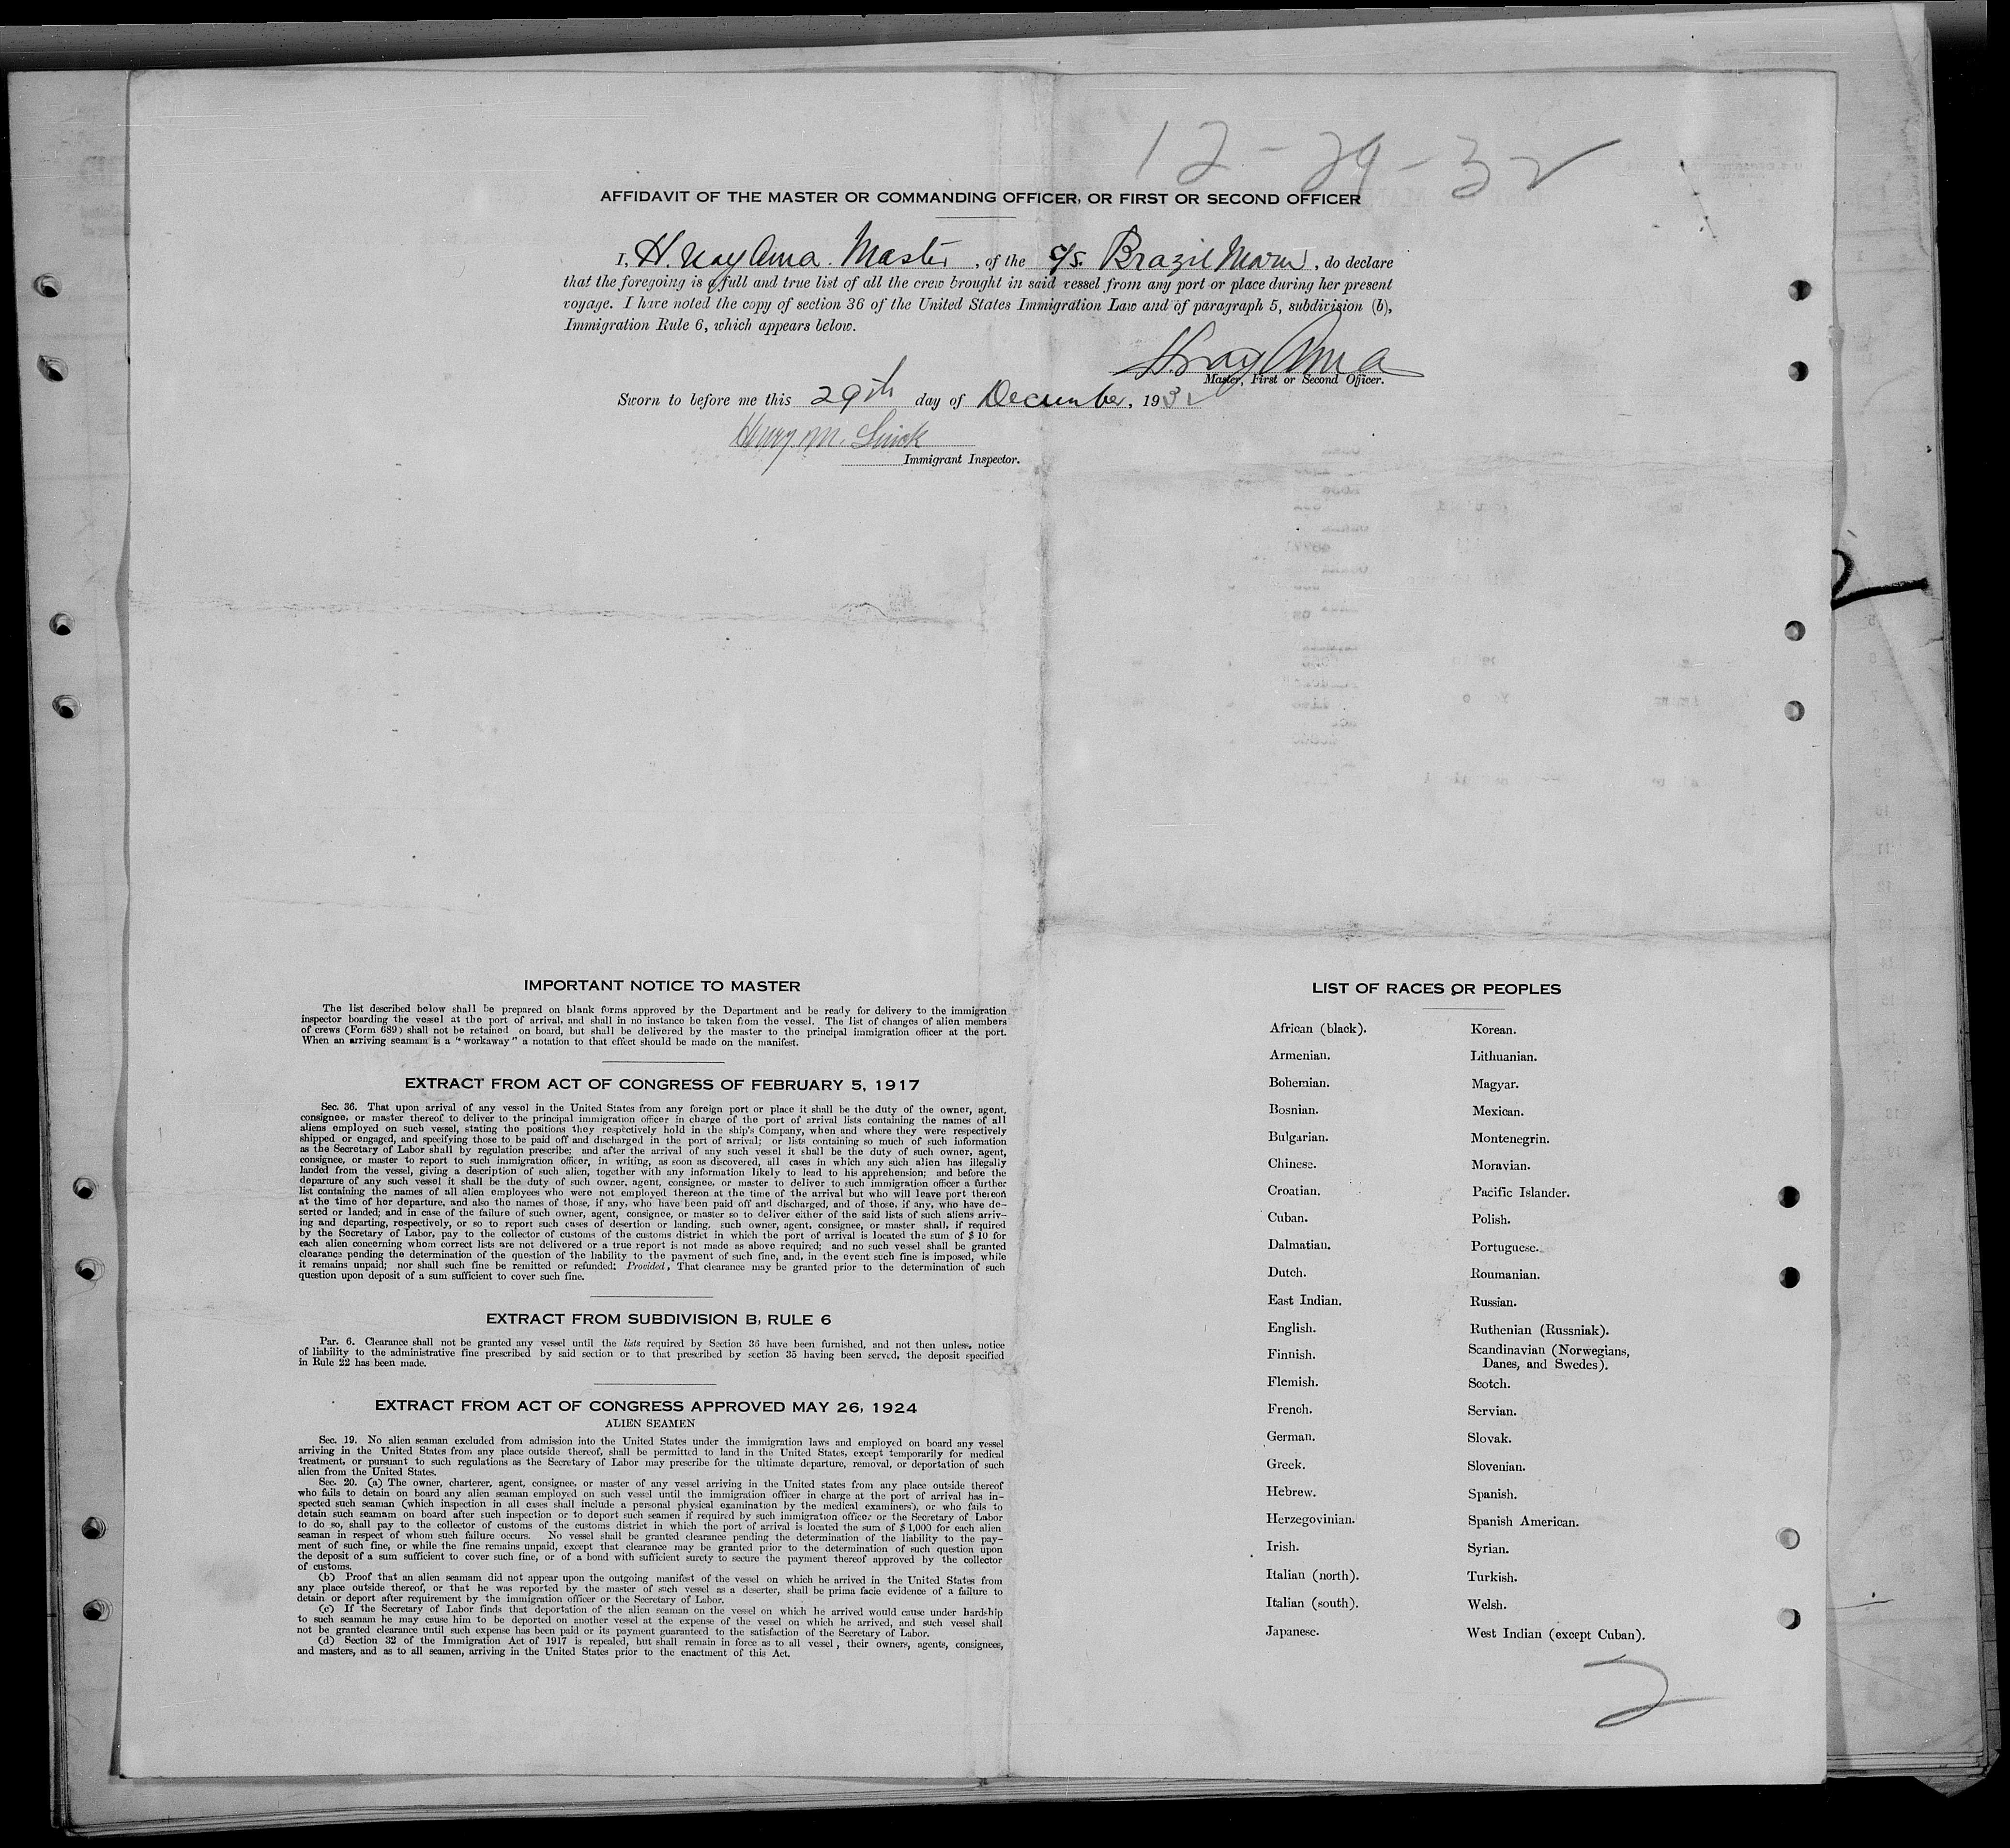 12-29-32
AFFIDAVIT OF THE MASTER OR COMMANDING OFFICER, OR FIRST OR SECOND OFFICER
I, H. Master, of the S/S. Brazil Maru, do declare
that the foregoing is a full and true list of all the crew brought in said vessel from any port or place during her present
voyage. I have noted the copy of section 36 of the United States Immigration Law and of paragraph 5, subdivision (b),
Immigration Rule 6, which appears below.
Master, First or Second Officer.
Sworn to before me this 29th day of December, 1932
Henry M.
Immigrant Inspector.
2
IMPORTANT NOTICE TO MASTER
The list described below shall be prepared on blank forms approved by the Department and be ready for delivery to the immigration
inspector boarding the vessel at the port of arrival, and shall in no instance be taken from the vessel. The list of changes of alien members
of crews (Form 689) shall not be retained on board, but shall be delivered by the master to the principal immigration officer at the port.
When an arriving seamam is a "workaway" a notation to that effect should be made on the manifest.
EXTRACT FROM ACT OF CONGRESS OF FEBRUARY 5, 1917
Sec. 36. That upon arrival of any vessel in the United States from any foreign port or place it shall be the duty of the owner, agent,
consignee, or master thereof to deliver to the principal immigration officer in charge of the port of arrival lists containing the names of all
aliens employed on such vessel, stating the positions they respectively hold in the ship's Company, when and where they were respectively
shipped or engaged, and specifying those to be paid off and discharged in the port of arrival; or lists containing so much of such information
as the Secretary of Labor shall by regulation prescribe; and after the arrival of any such vessel it shall be the duty of such owner, agent,
consignee, or master to report to such immigration officer, in writing, as soon as discovered, all cases in which any such alien has illegally
landed from the vessel, giving a description of such alien, together with any information likely to lead to his apprehension; and before the
departure of any such vessel it shall be the duty of such owner, agent, consignee, or master to deliver to such immigration officer a further
list containing the names of all alien employees who were not employed thereon at the time of the arrival but who will leave port thereon
at the time of her departure, and also the names of those, if any, who have been paid off and discharged, and of those, if any, who have de-
serted or landed; and in case of the failure of such owner, agent, consignee, or master so to deliver either of the said lists of such aliens arriv-
ing and departing, respectively, or so to report such cases of desertion or landing, such owner, agent, consignee, or master shall, if required
by the Secretary of Labor, pay to the collector of customs of the customs district in which the port of arrival is located the sum of $10 for
each alien concerning whom correct lists are not delivered or a true report is not made as above required; and no such vessel shall be granted
clearance pending the determination of the question of the liability to the payment of such fine, and, in the event such fine is imposed, while
it remains unpaid; nor shall such fine be remitted or refunded: Provided, That clearance may be granted prior to the determination of such
question upon deposit of a sum sufficient to cover such fine.
EXTRACT FROM SUBDIVISION B, RULE 6
Par. 6. Clearance shall not be granted any vessel until the lists required by Section 36 have been furnished, and not then unless, notice
of liability to the administrative fine prescribed by said section or to that prescribed by section 35 having been served, the deposit specified
in Rule 22 has been made.
EXTRACT FROM ACT OF CONGRESS APPROVED MAY 26, 1924
ALIEN SEAMEN
Sec. 19. No alien seaman excluded from admission into the United States under the immigration laws and employed on board any vessel
arriving in the United States from any place outside thereof, shall be permitted to land in the United States, except temporarily for medical
treatment, or pursuant to such regulations as the Secretary of Labor may prescribe for the ultimate departure, removal, or deportation of such
alien from the United States.
Sec. 20. (a) The owner, charterer, agent, consignee, or master of any vessel arriving in the United states from any place outside thereof
who fails to detain on board any alien seaman employed on such vessel until the immigration officer in charge at the port of arrival has in-
spected such seaman (which inspection in all cases shall include a personal physical examination by the medical examiners), or who fails to
detain such seamam on board after such inspection or to deport such seamen if required by such immigration officer or the Secretary of Labor
to do so, shall pay to the collector of customs of the customs district in which the port of arrival is located the sum of $1,000 for each alien
seaman in respect of whom such failure occurs. No vessel shall be granted clearance pending the determination of the liability to the pay-
ment of such fine, or while the fine remains unpaid, except that clearance may be granted prior to the determination of such question upon
the deposit of a sum sufficient to cover such fine, or of a bond with sufficient surety to secure the payment thereof approved by the collector
of customs.
(b) Proof that an alien seamam did not appear upon the outgoing manifest of the vessel on which he arrived in the United States from
any place outside thereof, or that he was reported by the master of such vessel as a deserter, shall be prima facie evidence of a failure to
detain or deport after requirement by the immigration officer or the Secretary of Labor.
(c) If the Secretary of Labor finds that deportation of the alien seaman on the vessel on which he arrived would cause under hardship
to such seamam he may cause him to be deported on another vessel at the expense of the vessel on which he arrived, and such vessel shall
not be granted clearance until such expense has been paid or its payment guaranteed to the satisfaction of the Secretary of Labor.
(d) Section 32 of the Immigration Act of 1917 is repealed, but shall remain in force as to all vessel, their owners, agents, consignees,
and masters, and as to all seamen, arriving in the United States prior to the enactment of this Act.
LIST OF RACES OR PEOPLES
African (black).
Armenian.
Bohemian.
Bosnian.
Bulgarian.
Chinese.
Croatian.
Cuban.
Dalmatian.
Dutch.
East Indian.
English.
Finnish.
Flemish.
French.
German.
Greek.
Hebrew.
Herzegovinian.
Irish.
Italian (north).
Italian (south).
Japanese.
Korean.
Lithuanian.
Magyar.
Mexican.
Montenegrin.
Moravian.
Pacific Islander.
Polish.
Portuguese.
Roumanian.
Russian.
Ruthenian (Russniak).
Scandinavian (Norwegians,
Danes, and Swedes).
Scotch.
Servian.
Slovak.
Slovenian.
Spanish.
Spanish American.
Syrian.
Turkish.
Welsh.
West Indian (except Cuban).
2